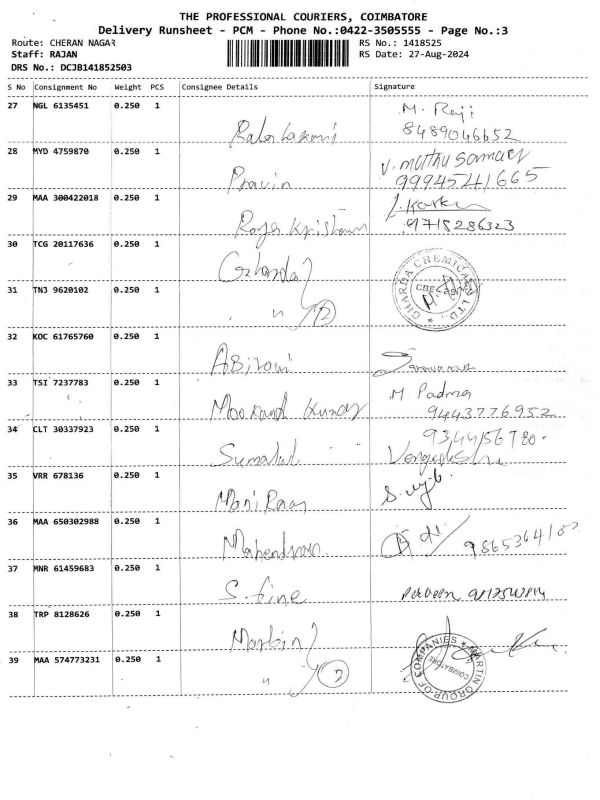 THE PROFESSIONAL COURIERS, COIMBATORE
Delivery Runsheet - PCM - Phone No.:0422-3505555 - Page No.:3
Route: CHERAN NAGAR RS No.: 1418525
Staff: RAJAN RS Date: 27-Aug-2024
DRS No.: DCJB141852503
S No Consignment No Weight PCS Consignee Details Signature
27 NGL 6135451 0.250 1 M. Raji
8489046652
28 MYD 4759870 0.250 1 V. muthu
Pravin 9994541665
29 MAA 300422018 0.250 1
Raja Krishnan 9715286323
30 TCG 20117636 0.250 1
Gharda GHARDA CHEMICALS LTD.
CBE
31 TNJ 9620102 0.250 1
" 2
32 KOC 61765760 0.250 1
ABirami
33 TSI 7237783 0.250 1 M. Padma
Kumar 9443776952
34 CLT 30337923 0.250 1 9344156780
35 VRR 678136 0.250 1
Mani
36 MAA 650302988 0.250 1
Mahendran
37 MNR 61459683 0.250 1
S. fine
38 TRP 8128626 0.250 1
Martin MARTIN GROUP OF COMPANIES
COIMBATORE
39 MAA 574773231 0.250 1
" 2